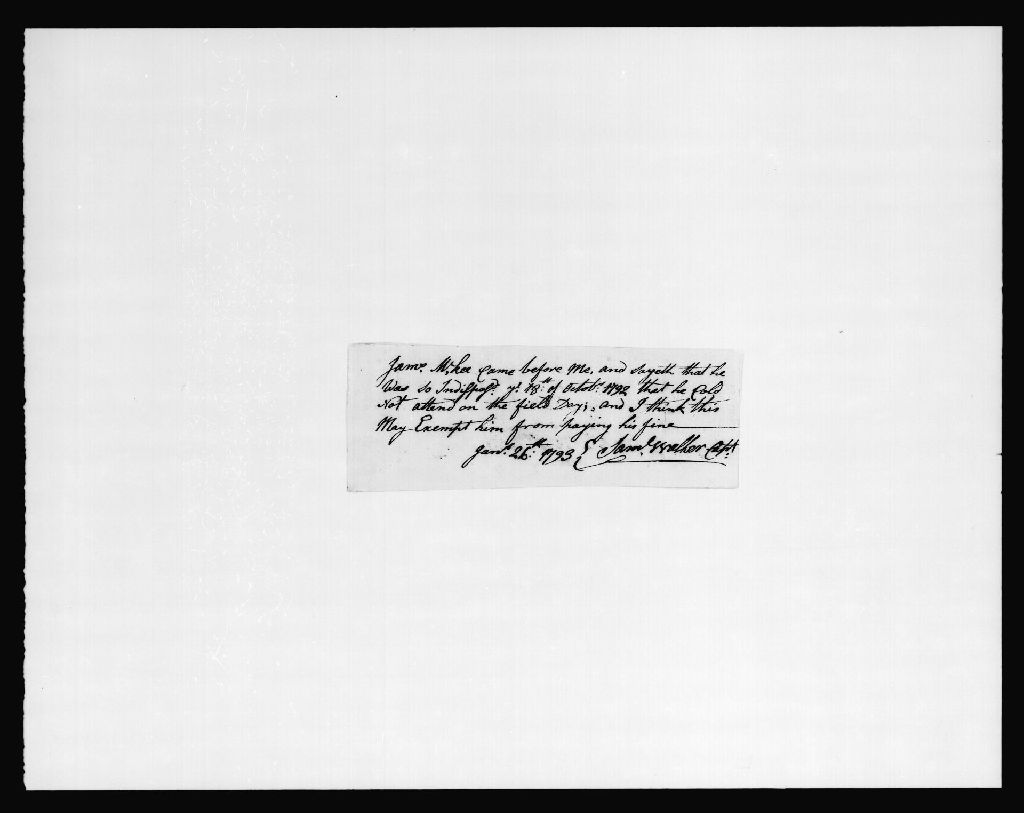 Jams. McKee Came before Me, and sayeth that he
Was so Indisposd. ye. 18th. of Octobr. 1792 that he Cold
Not attend on the field Day, and I think this
May Exempt him from paying his fine
Jany. 26th. 1793 Saml. Walker Capt.